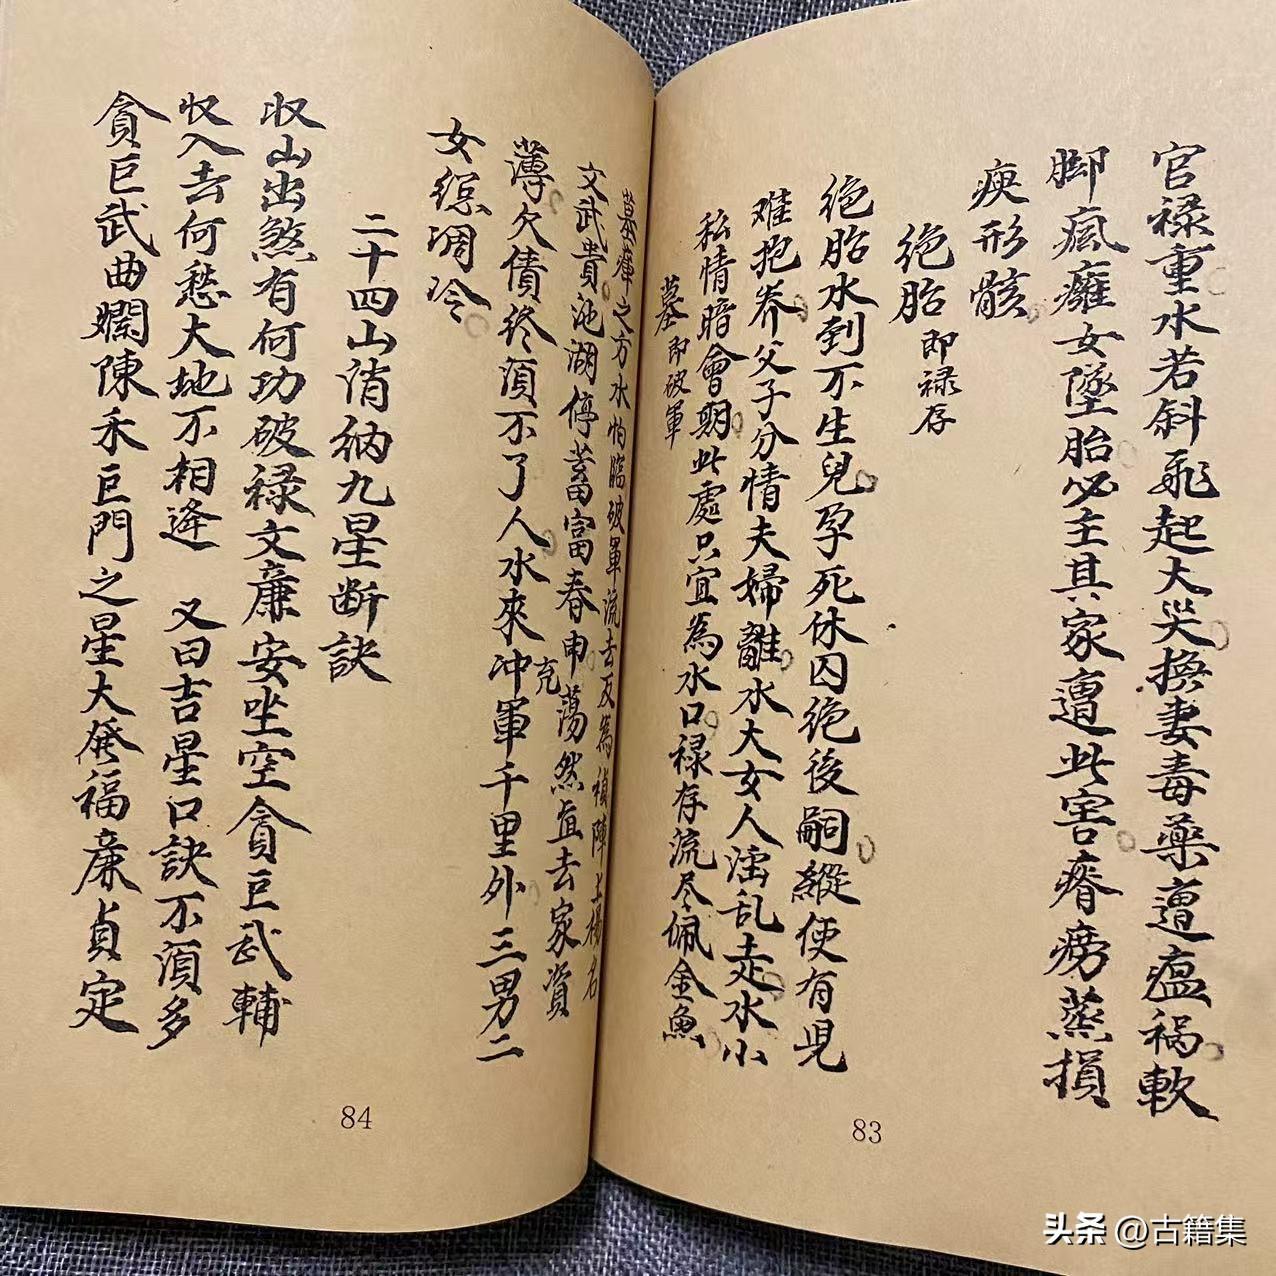 官禄重水若斜飛起大災換妻毒藥遭瘟禍軟
脚瘋癱女墜胎必主其家遭此害瘠痨蒸損
痍形骸
绝胎即禄存
绝胎水到不生兒孕死休囚绝後嗣縱使有児
难抱养父子分情夫婦離水大女人淫乱走水小
私情暗會期此處只宜為水口禄存流尽佩金魚
墓即破軍
墓庫之方水怕臨破軍流去反為禎陣上揚名
文武貴池湖停蓄富春申蕩然直去家資
薄欠债终須不了人水來冲軍千里外三男二
充
女總凋冷
83
二十四山消纳九星断訣
収山出煞有何功破禄文廉安坐空貪巨武輔
収入去何愁大地不相逢 又曰吉星口訣不須多
貪巨武曲爛陳禾巨門之星大発福廉貞定
84
头条 @古籍集